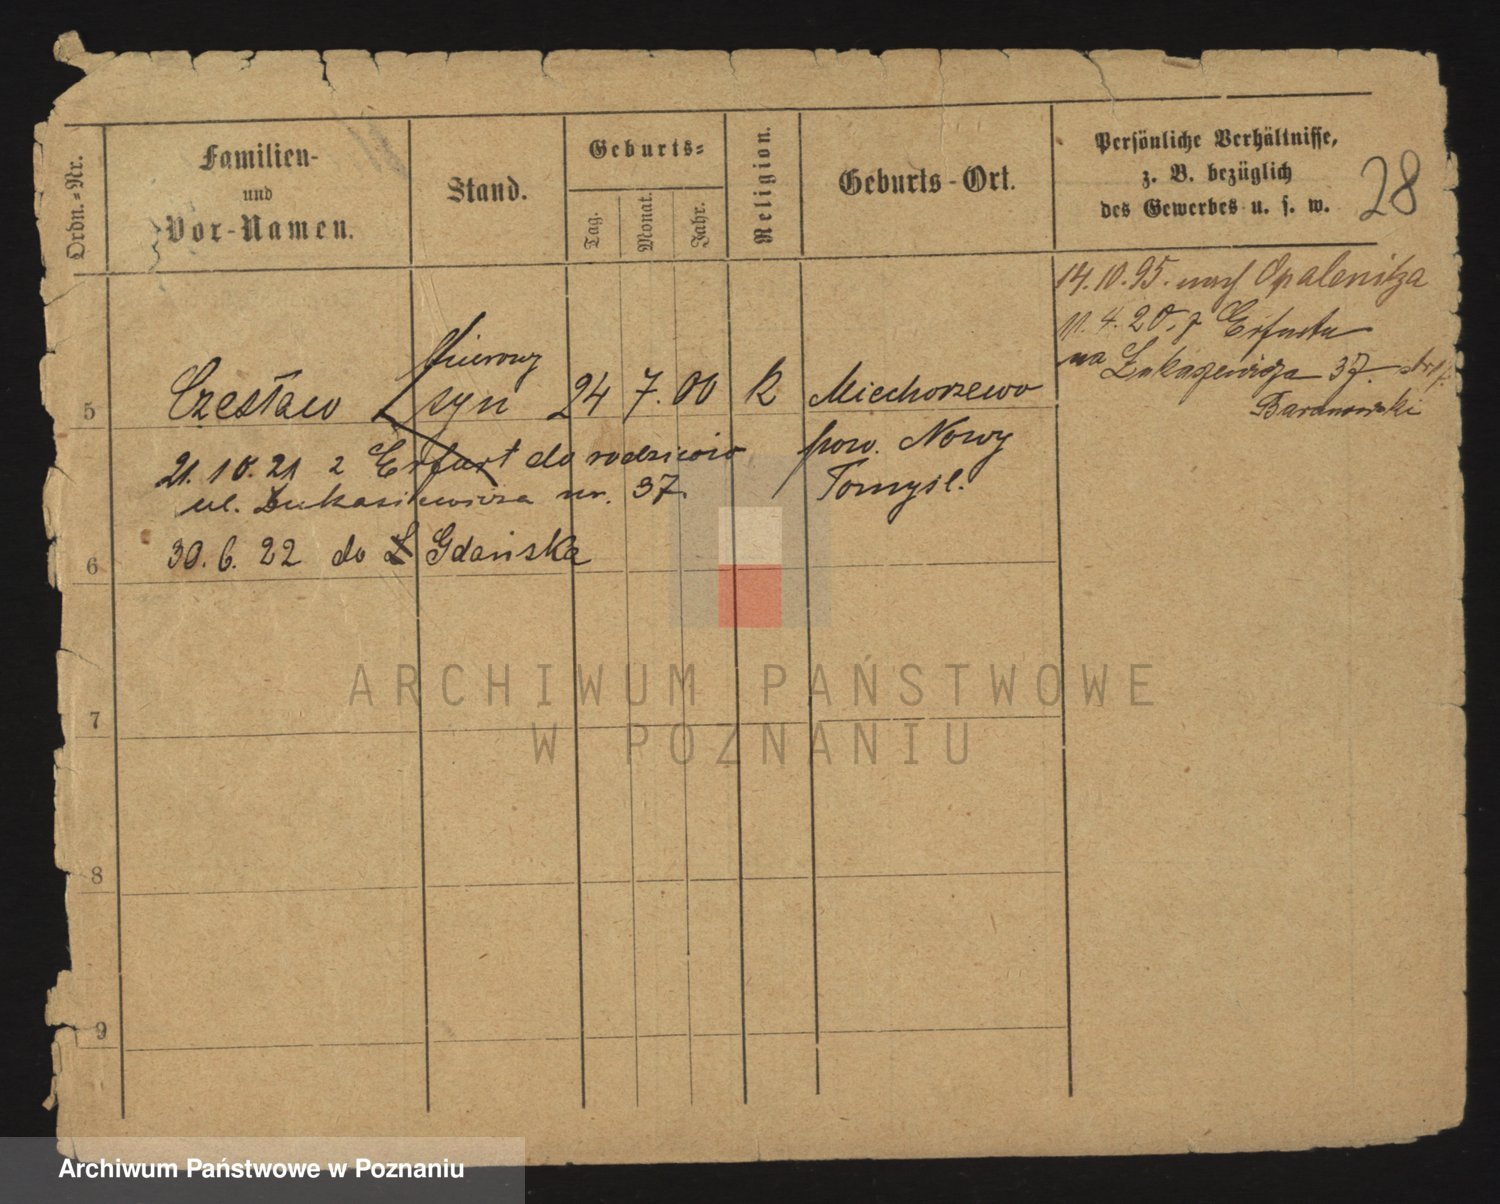 Ordn.-Nr.
Familien-
und
Vor-Namen.
Stand.
Geburts-
Tag.
Monat.
Jahr.
Religion.
Geburts-Ort.
Persönliche Verhältnisse,
z. B. bezüglich
des Gewerbes u. s. w.
28
14.10.95. nach Opalenitza
11.4.20. z Erfurtu
na Łukaszewicza 37.
Baranowski
5 Czesław syn 24 7. 00 K Miechorzewo
pow. Nowy
Tomyśl.
21.10.21 z Erfurt do rodziców
ul. Łukasiewicza nr. 37.
6 30.6.22 do Gdańska
7
8
9
ARCHIWUM PAŃSTWOWE
W POZNANIU
Archiwum Państwowe w Poznaniu